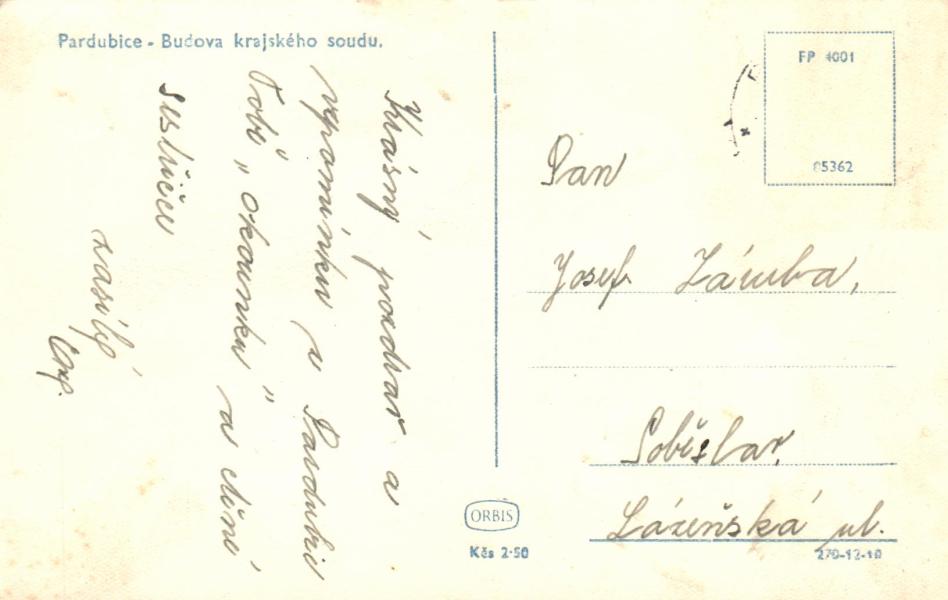 Pardubice - Budova krajského soudu.
Krásný pozdrav a
vzpomínku z Pardubic
Tobě „okounku" a celé
zasílý
FP 4001
05362
Pan
Josef Zámba,
Soběslav,
Lázeňská ul.
ORBIS
Kčs 2·50
270-12-10